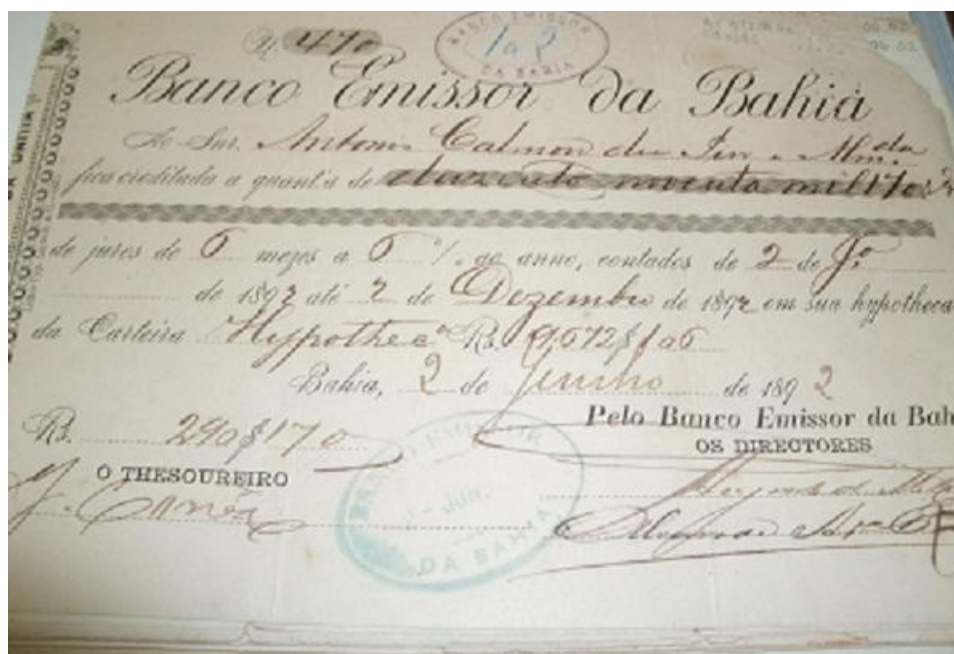 N. 470
BANCO EMISSOR
1a 2
DA BAHIA
Banco Emissor da Bahia
Ao Snr. Antonio Calmon du Pin e Alm.da
fica creditada a quantia de duzentos noventa mil 170 rs
de juros de 6 mezes a 6 % ao anno, contados de 2 de Jo.
de 1892 até 2 de Dezembro de 1892 em sua hypotheca
da Carteira Hypotheca Rs. 9:672$106
Bahia, 2 de Junho de 1892
Pelo Banco Emissor da Bah
OS DIRECTORES
Rs. 290$170
O THESOUREIRO
BANCO EMISSOR
JUN.
DA BAHIA